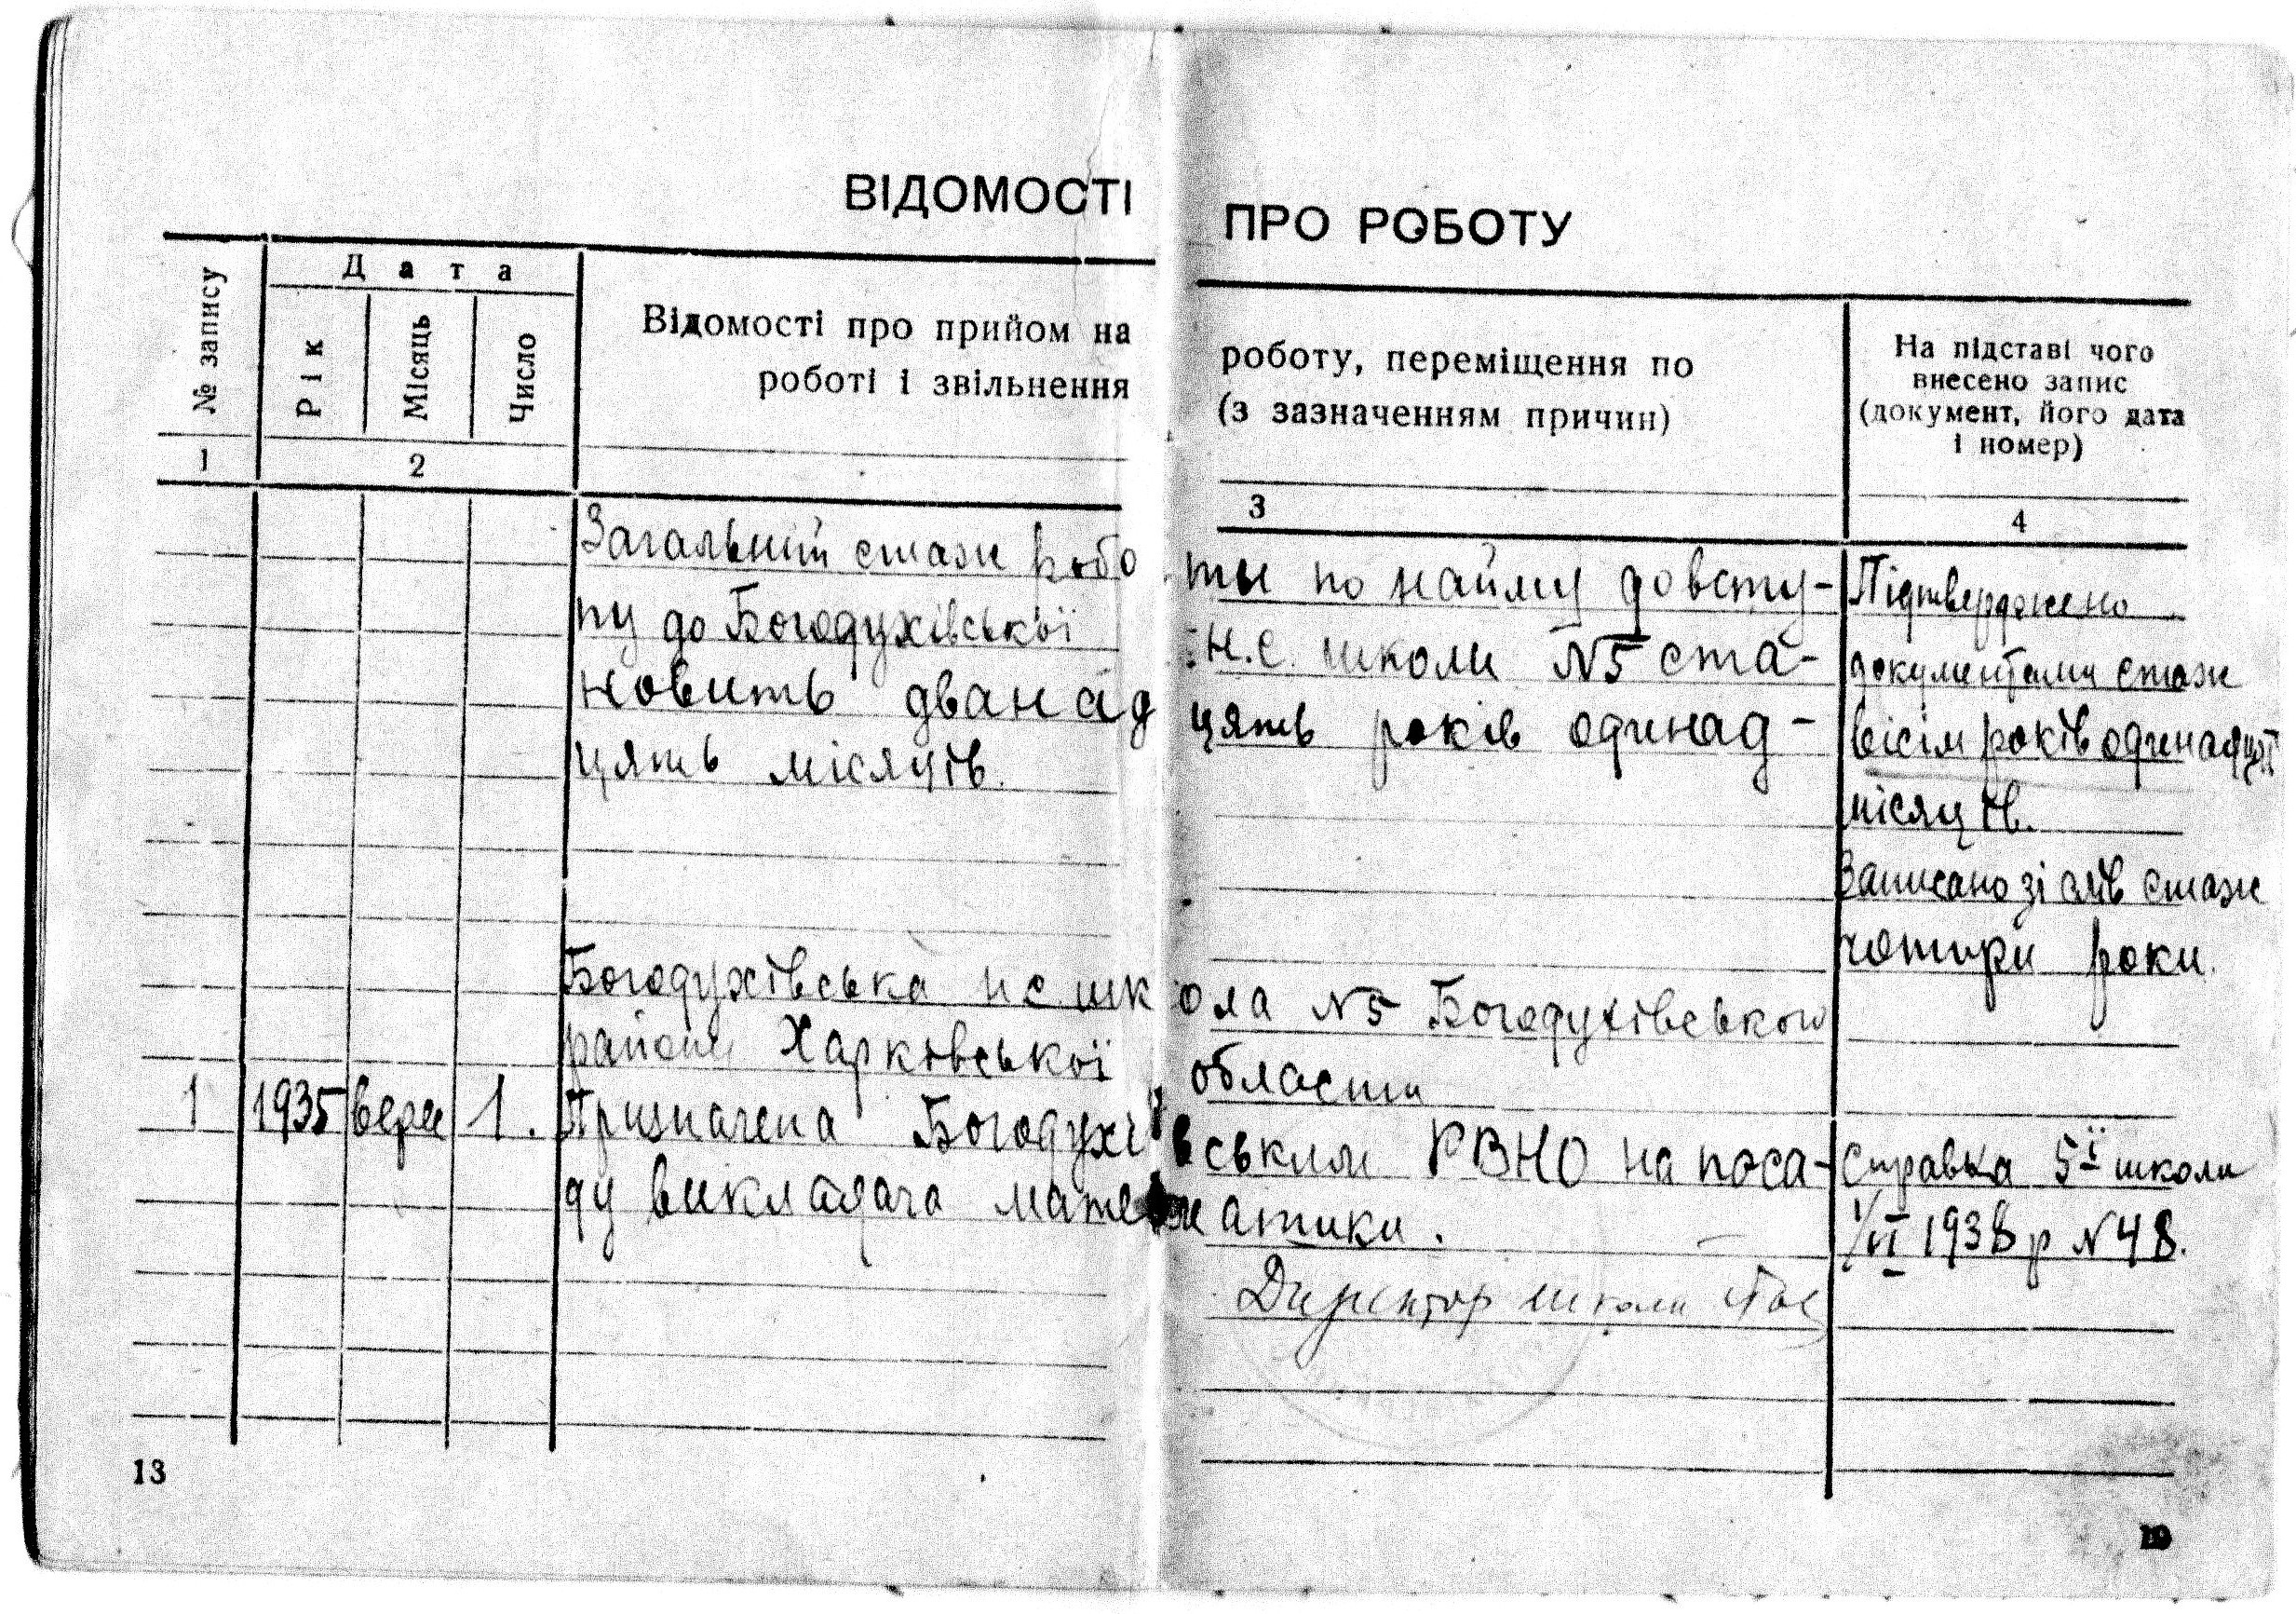 ВІДОМОСТІ ПРО РОБОТУ
№ запису
Дата
Рік
Місяць
Число
Відомості про прийом на роботу, переміщення по
роботі і звільнення (з зазначенням причин)
На підставі чого
внесено запис
(документ, його дата
і номер)
1 2 3 4
Загальний стаж роботы по найму довсту-
пу до Богодухівської н.с. школи №5 ста-
новить дванадцять років одинад-
цять місяців.
Підтверджено
документами стаж
вісім років одинадцять
місяців.
Записано зі слів стаж
чотири роки.
Богодухівська нс школа №5 Богодухівського
району Харківської области
1 1935 вере 1. Призначена Богодухівським РВНО на поса-
ду викладача математики.
Справка 5ї школи
1/VI 1938 р №48.
Директор школи
13